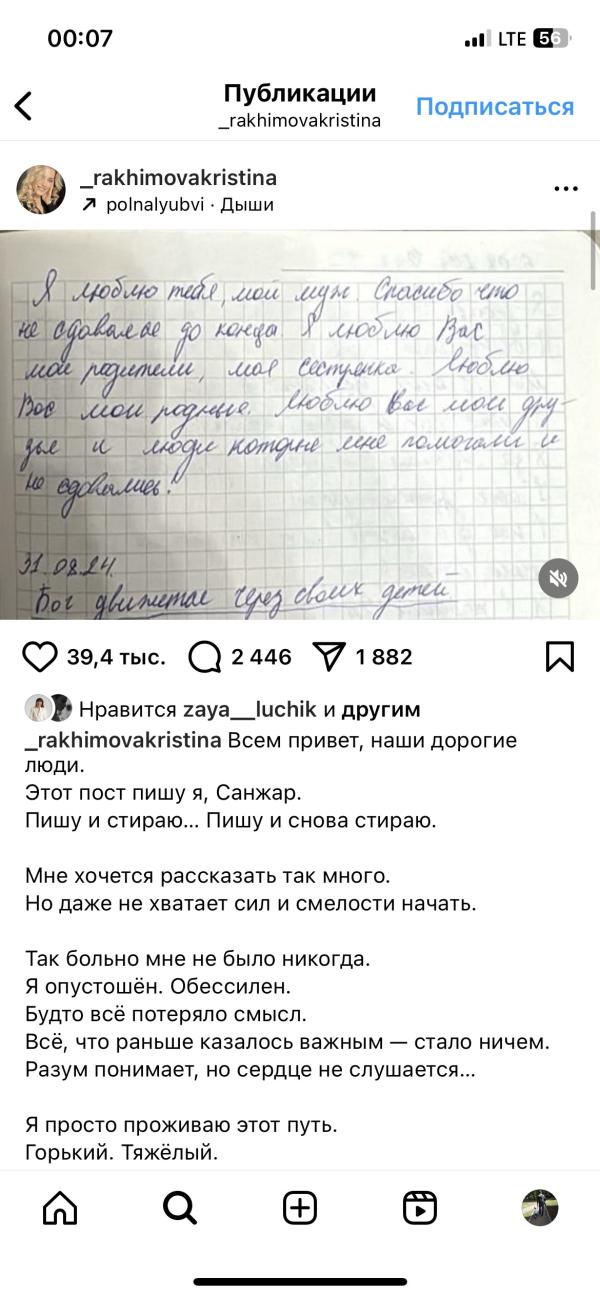 00:07 LTE 56
Публикации
_rakhimovakristina
Подписаться
_rakhimovakristina
polnalyubvi · Дыши
Я люблю тебя, мой муж. Спасибо что
не сдавался до конца. Я люблю Вас
мои родители, моя сестренка. Люблю
Вас мои родные. Люблю Вас мои дру-
зья и люди которые мне помогали и
не сдавались!
31.08.24.
Бог движется через своих детей
39,4 тыс. 2 446 1 882
Нравится zaya__luchik и другим
_rakhimovakristina Всем привет, наши дорогие
люди.
Этот пост пишу я, Санжар.
Пишу и стираю... Пишу и снова стираю.
Мне хочется рассказать так много.
Но даже не хватает сил и смелости начать.
Так больно мне не было никогда.
Я опустошён. Обессилен.
Будто всё потеряло смысл.
Всё, что раньше казалось важным — стало ничем.
Разум понимает, но сердце не слушается...
Я просто проживаю этот путь.
Горький. Тяжёлый.